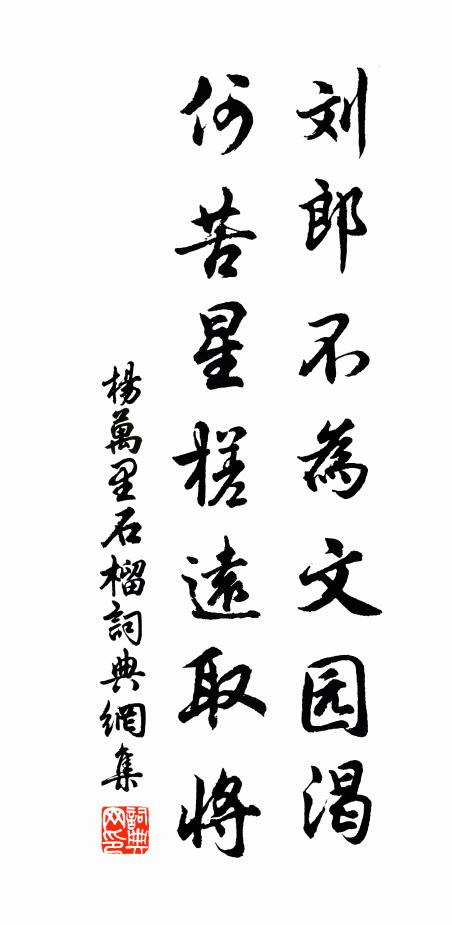 刘郎不為文园渴
何苦星槎遠取将
楊萬里石榴詞典網集
詞典网印